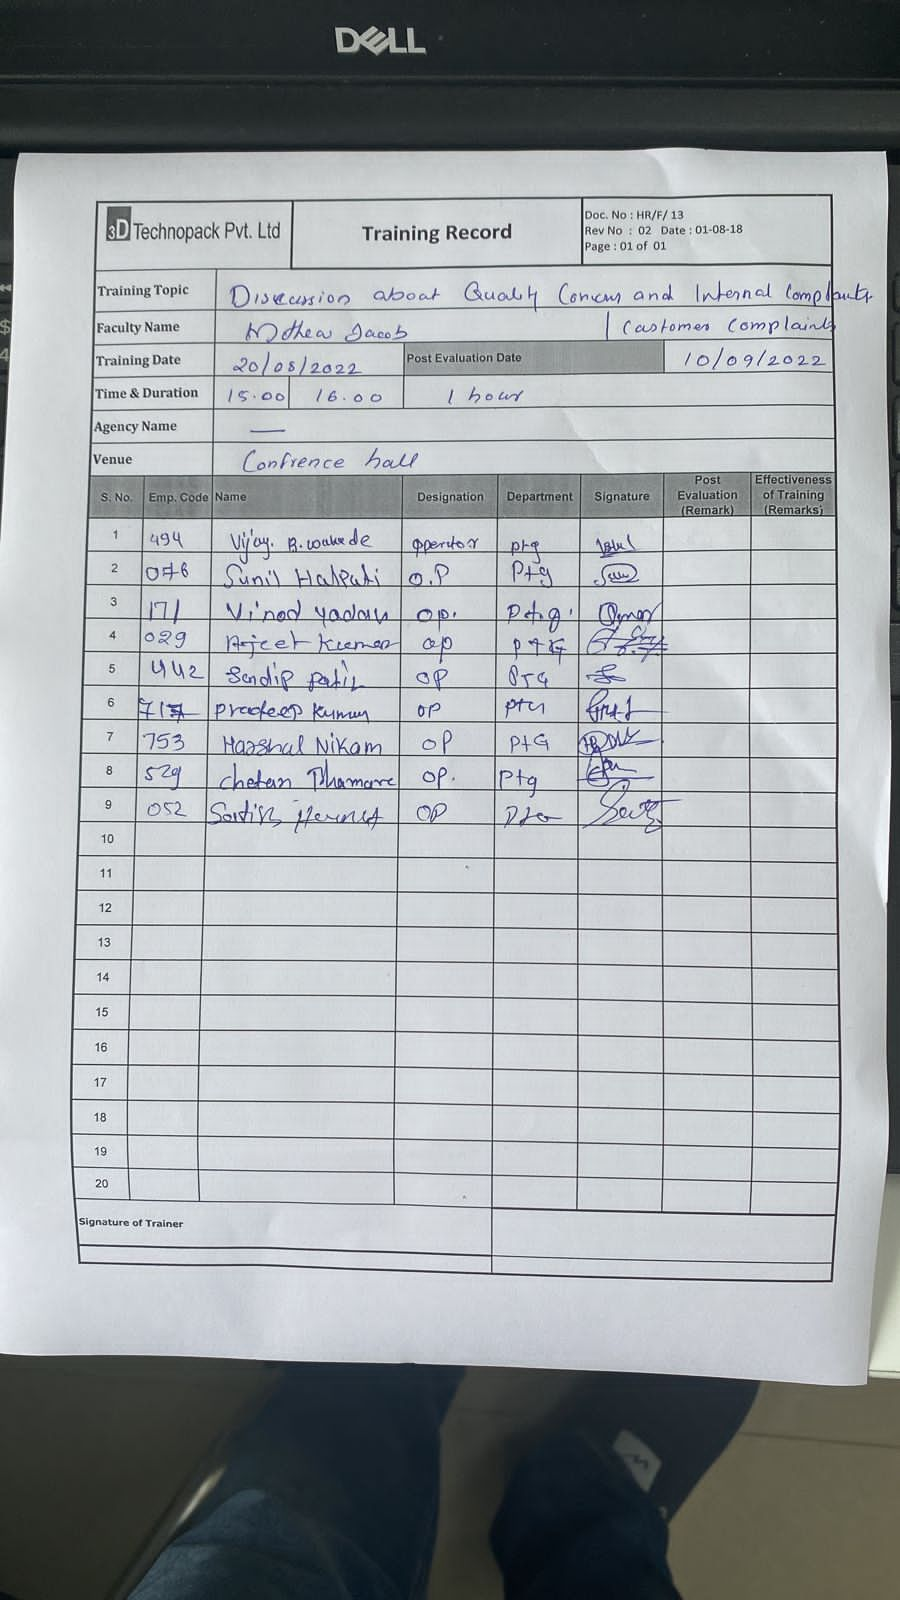 DELL
3D Technopack Pvt. Ltd
Training Record
Doc. No : HR/F/ 13
Rev No : 02 Date : 01-08-18
Page : 01 of 01
Training Topic Discussion about Quality Concerns and Internal Complaints
Faculty Name Jacob / Customer Complaints
Training Date 20/08/2022 Post Evaluation Date 10/09/2022
Time & Duration 15.00 16.00 1 hour
Agency Name —
Venue Confrence hall
S. No. Emp. Code Name Designation Department Signature Post Evaluation (Remark) Effectiveness of Training (Remarks)
1 494 Vijay. B. operator ptg
2 078 Sunil Halpati O.P Ptg
3 171 Vinod yadav OP. Ptg.
4 029 Arjeet Kumar op PTG
5 442 Sandip patil OP PTG
6 pradeep Kumar OP
7 753 Harshal Nikam OP PtG
8 529 chetan Dhamare OP. Ptg
9 052 OP
10
11
12
13
14
15
16
17
18
19
20
Signature of Trainer